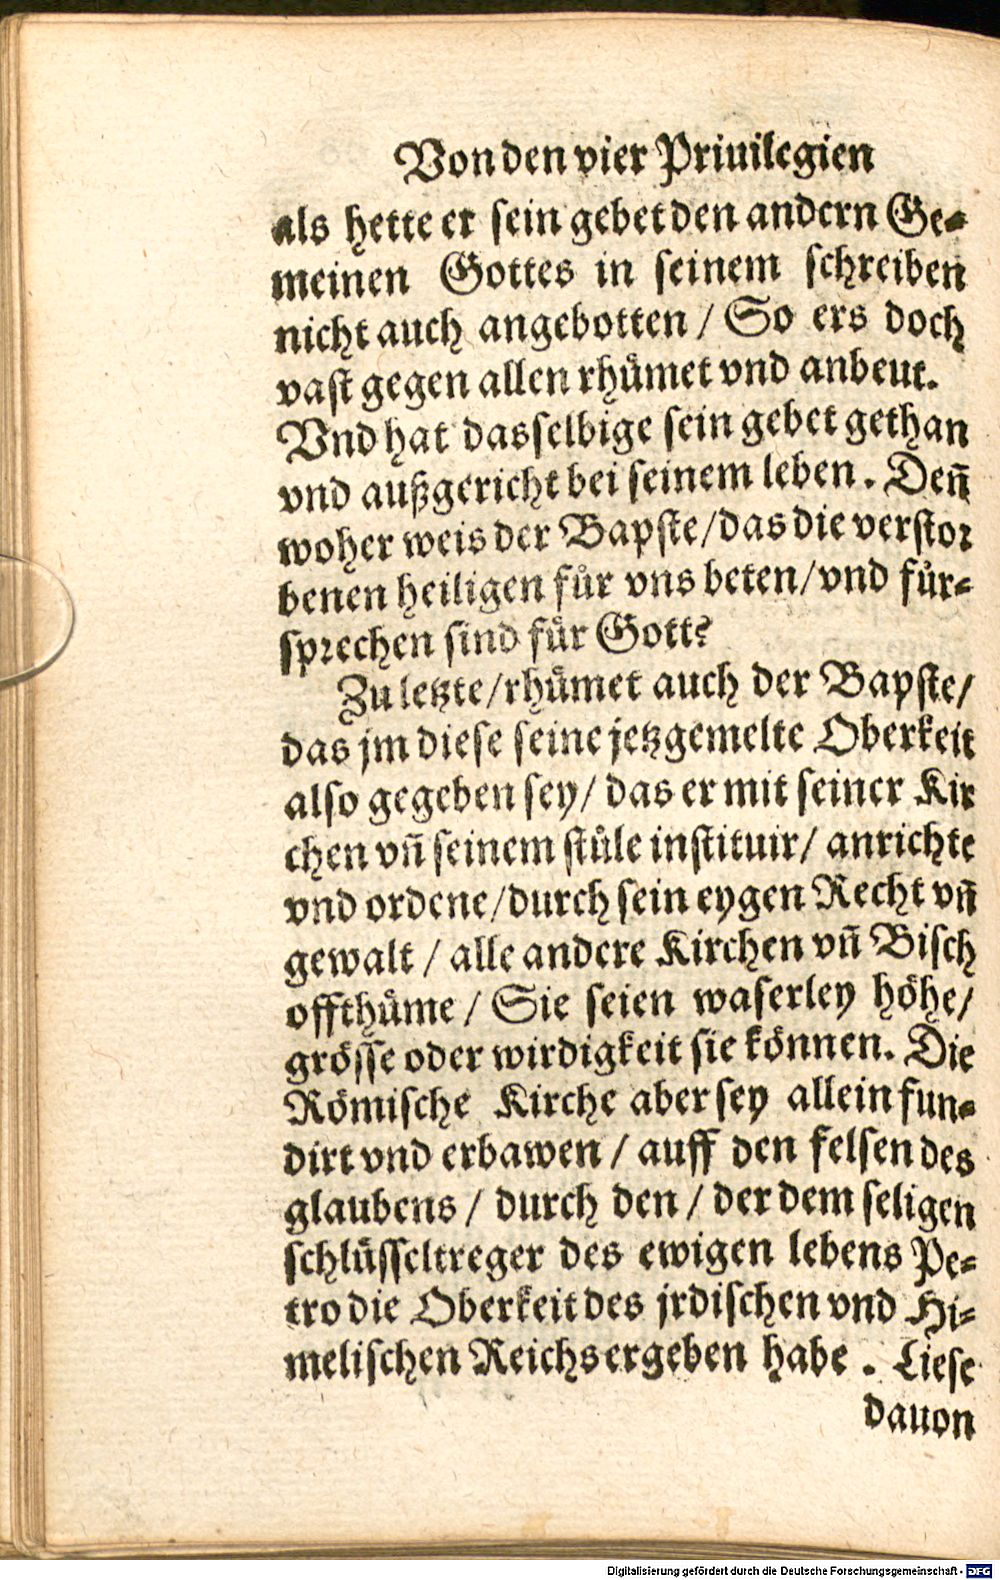 Von den vier Priuilegien
als hette er sein gebet den andern Ge-
meinen Gottes in seinem schreiben
nicht auch angebotten / So ers doch
vast gegen allen rhuͤmet vnd anbeut.
Vnd hat dasselbige sein gebet gethan
vnd außgericht bei seinem leben. Deñ
woher weis der Bapste / das die verstor
benen heiligen fuͤr vns beten / vnd fuͤr-
sprechen sind fuͤr Gott?
Zu letzte / rhuͤmet auch der Bapste /
das jm diese seine jetzgemelte Oberkeit
also gegeben sey / das er mit seiner Kir
chen vñ seinem stuͤle instituir / anrichte
vnd ordene / durch sein eygen Recht vñ
gewalt / alle andere Kirchen vñ Bisch
offthuͤme / Sie seien waserley hoͤhe /
groͤsse oder wirdigkeit sie koͤnnen. Die
Roͤmische Kirche aber sey allein fun-
dirt vnd erbawen / auff den felsen des
glaubens / durch den / der dem seligen
schluͤsseltreger des ewigen lebens Pe-
tro die Oberkeit des jrdischen vnd Hi-
melischen Reichs ergeben habe. Liese
dauon
Digitalisierung gefördert durch die Deutsche Forschungsgemeinschaft - DFG